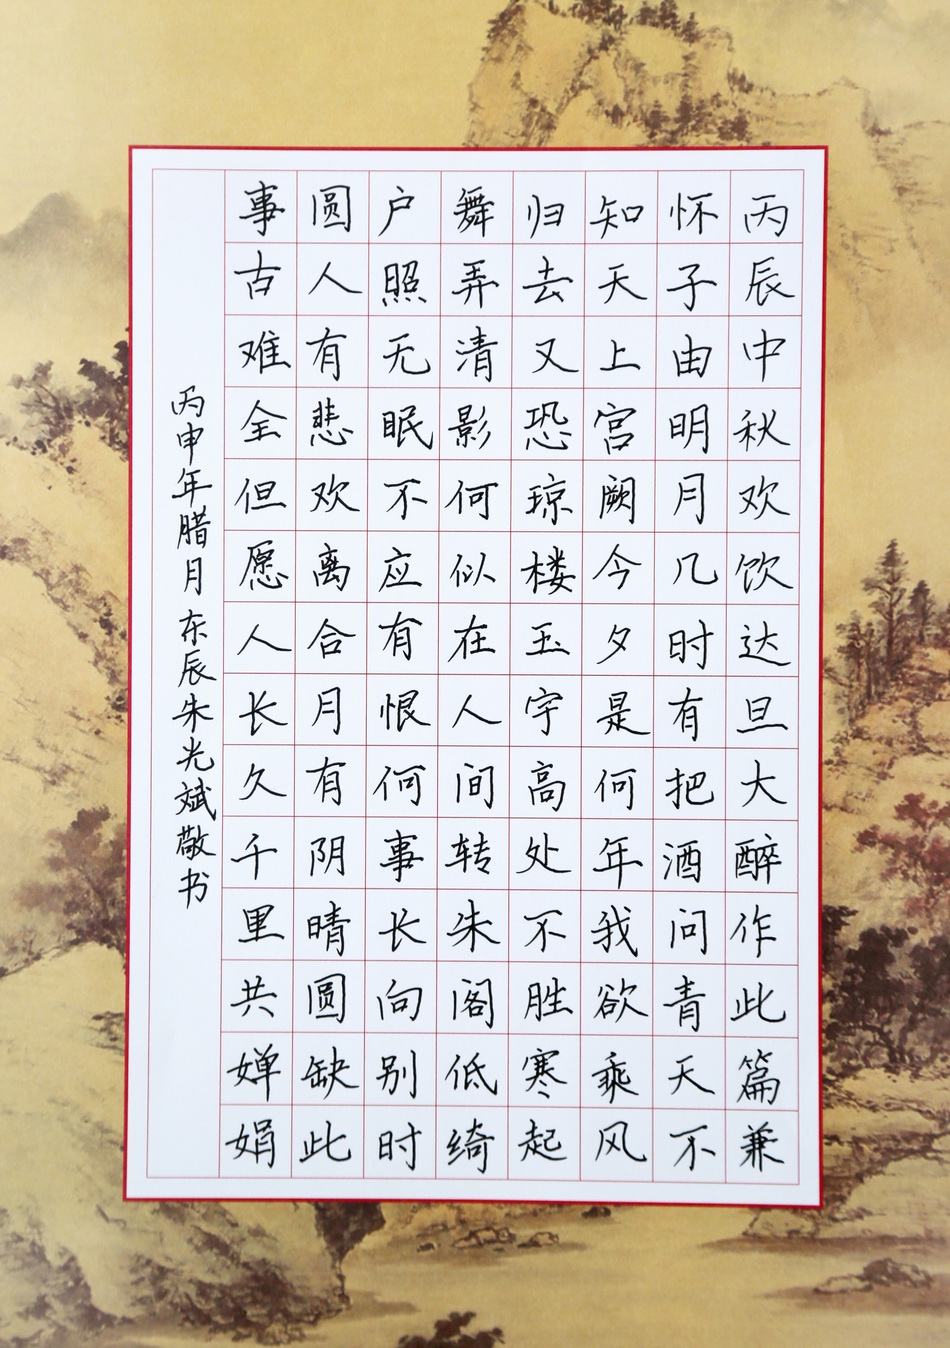 丙辰中秋欢饮达旦大醉作此篇兼
怀子由明月几时有把酒问青天不
知天上宫阙今夕是何年我欲乘风
归去又恐琼楼玉宇高处不胜寒起
舞弄清影何似在人间转朱阁低绮
户照无眠不应有恨何事长向别时
圆人有悲欢离合月有阴晴圆缺此
事古难全但愿人长久千里共婵娟
丙申年腊月东辰朱光斌敬书